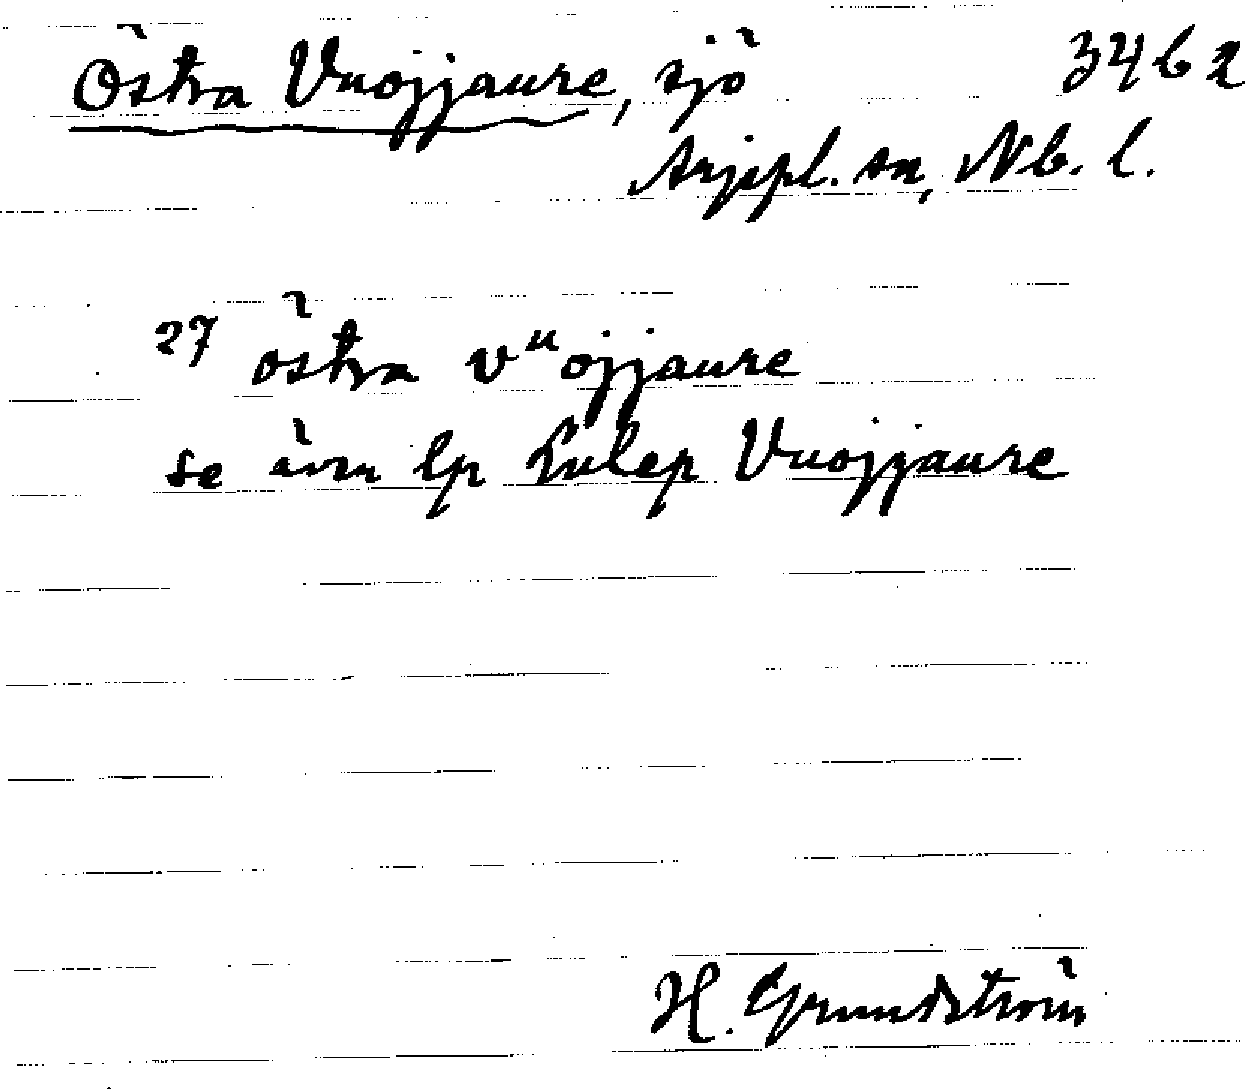 Östra Vuojjaure, sjö 3462
Arjepl. sn, Nb. l.
27 östra vuojjaure
se även lp Lulep Vuojjaure
H. Grundström